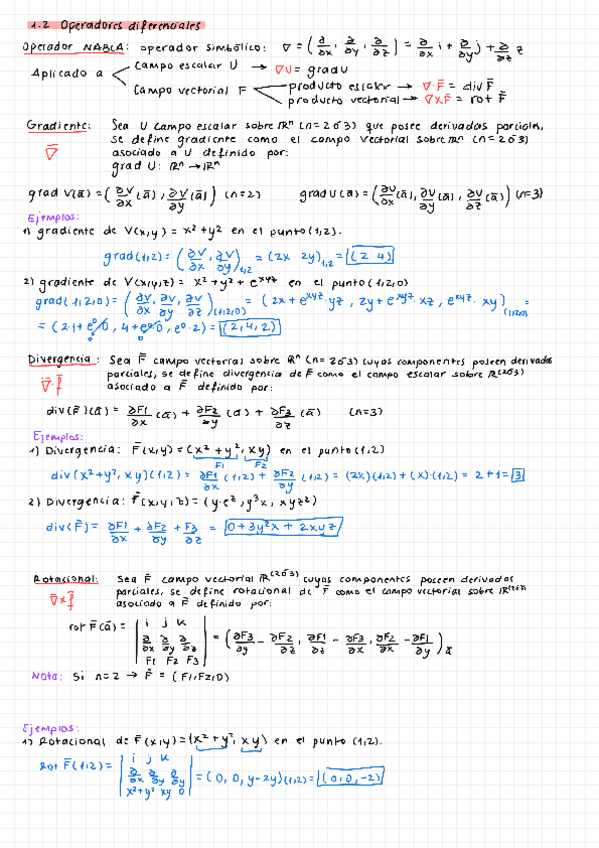 1.2 Operadores diferenciales
Operador NABLA: operador simbólico: ∇ = (∂/∂x, ∂/∂y, ∂/∂z) = ∂/∂x i + ∂/∂y j + ∂/∂z z
Aplicado a
Campo escalar U → ∇U = grad U
Campo vectorial F
producto escalar → ∇·F̄ = div F̄
producto vectorial → ∇xF̄ = rot F̄
Gradiente: Sea U campo escalar sobre ℝⁿ (n=2ó3) que posee derivadas parciales,
∇̄
se define gradiente como el campo vectorial sobre ℝⁿ (n=2ó3)
asociado a U definido por:
grad U: ℝⁿ → ℝⁿ
grad V(ā) = (∂V/∂x (ā), ∂V/∂y (ā)) (n=2) grad U(ā) = (∂U/∂x (ā), ∂V/∂y (ā), ∂V/∂z (ā)) (n=3)
Ejemplos:
1) gradiente de V(x,y) = x²+y² en el punto (1,2).
grad(1,2) = (∂V/∂x, ∂V/∂y)1,2 = (2x 2y)1,2 = (2 4)
2) gradiente de V(x,y,z) = x²+y²+e^xyz en el punto (1,2,0)
grad(1,2,0) = (∂V/∂x, ∂V/∂y, ∂V/∂z)(1,2,0) = (2x+e^xyz·yz, 2y+e^xyz·xz, e^xyz·xy)(1,2,0) =
= (2·1+e⁰·0, 4+e⁰·0, e⁰·2) = (2,4,2)
Divergencia: Sea F̄ campo vectorial sobre ℝⁿ (n=2ó3) cuyas componentes poseen derivadas
∇̄·f̄
parciales, se define divergencia de F̄ como el campo escalar sobre ℝ(2ó3)
asociado a F̄ definido por:
div(F̄)(ā) = ∂F1/∂x (ā) + ∂F2/∂y (ā) + ∂F3/∂z (ā) (n=3)
Ejemplos:
1) Divergencia: F̄(x,y) = (x²+y², xy) en el punto (1,2)
F1 F2
div(x²+y², xy)(1,2) = ∂F1/∂x (1,2) + ∂F2/∂y (1,2) = (2x)(1,2) + (x)·(1,2) = 2+1 = 3
2) Divergencia: F̄(x,y,z) = (y·e^z, y³x, xyz²)
div(F̄) = ∂F1/∂x + ∂F2/∂y + F3/∂z = 0+3y²x + 2xyz
Rotacional: Sea F̄ campo vectorial ℝ(2ó3) cuyas componentes poseen derivadas
∇̄xf̄
parciales, se define rotacional de F̄ como el campo vectorial sobre ℝ(2ó3)
asociado a F̄ definido por:
rot F̄(ā) = | i j k
∂/∂x ∂/∂y ∂/∂z
F1 F2 F3 | = (∂F3/∂y − ∂F2/∂z, ∂F1/∂z − ∂F3/∂x, ∂F2/∂x − ∂F1/∂y)ā
Nota: Si n=2 → F̄ = (F1,F2,0)
Ejemplos:
1) Rotacional de F̄(x,y) = (x²+y², xy) en el punto (1,2).
Rot F̄(1,2) = | i j k
∂/∂x ∂/∂y ∂/∂z
x²+y² xy 0 | = (0, 0, y−2y)(1,2) = (0,0,−2)